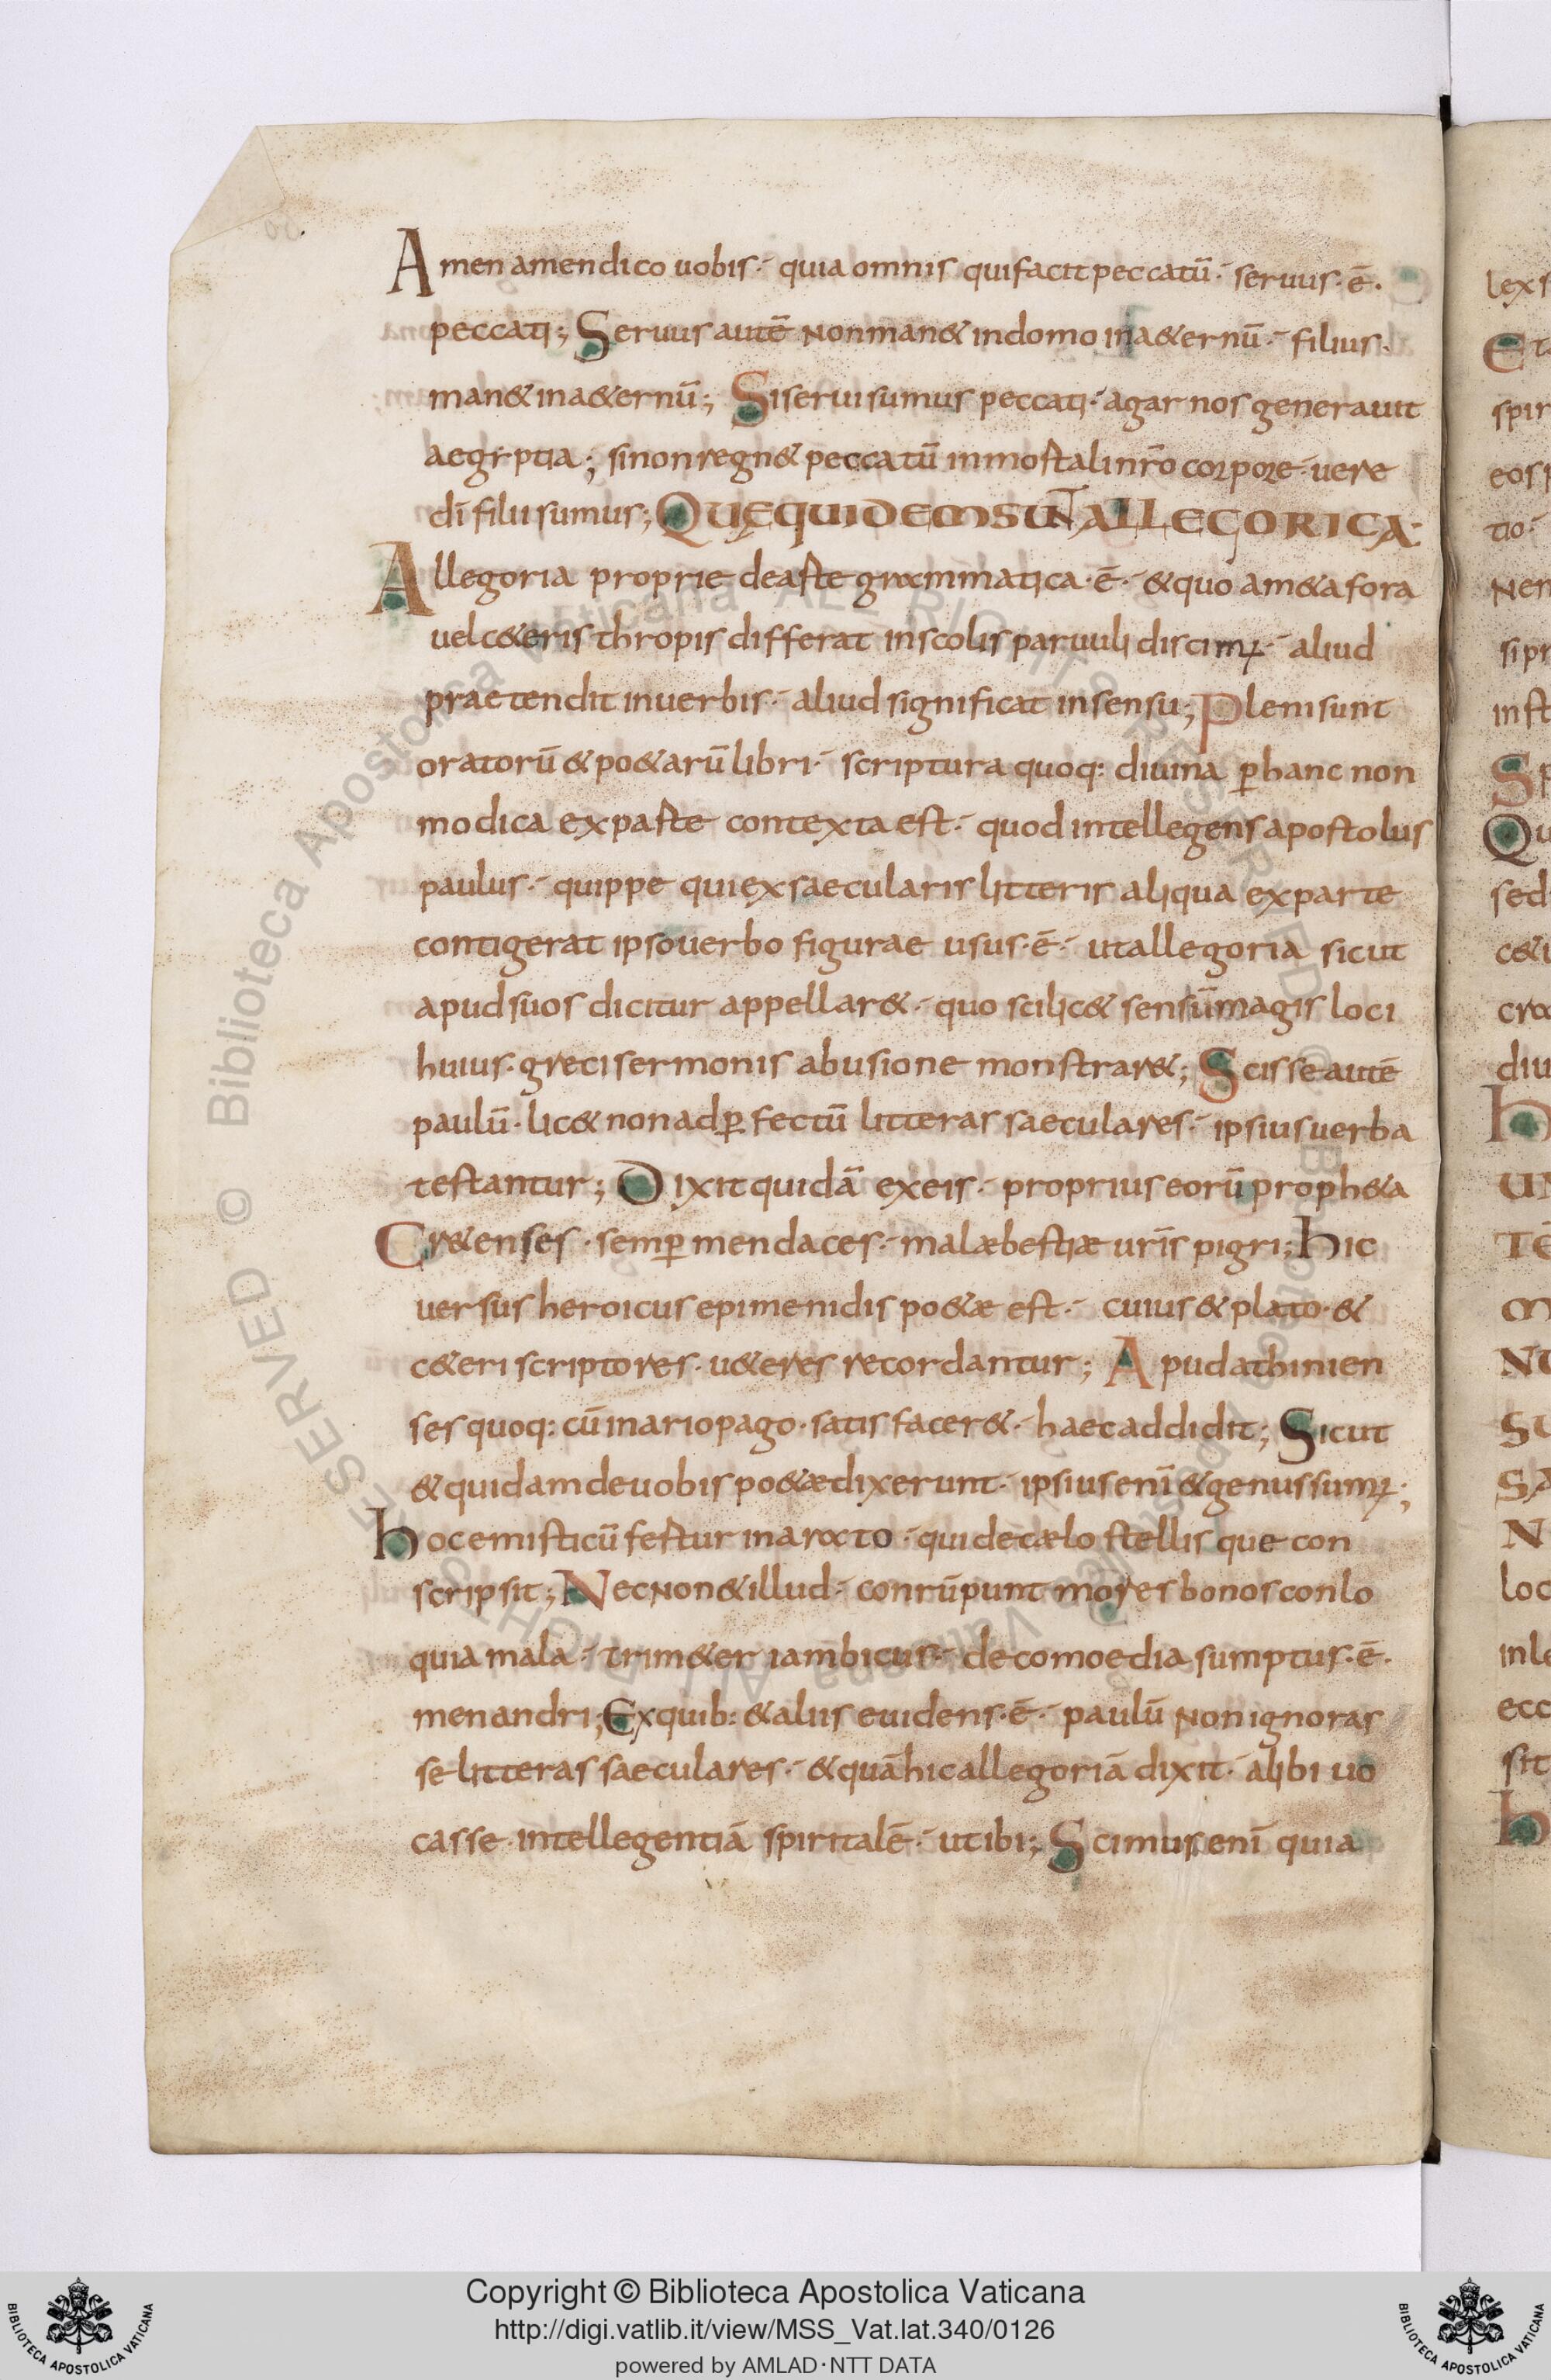 Amen amen dico uobis·- quia omnis qui facit peccatū·- seruus·ē·
peccati; Seruus autē non man& in domo in a&ernū·- filius·
man& in a&ernū; Si serui sumus peccati·- agar nos generauit
aegyptia; si non regn& peccatū in mortali nr̄o corpore·- uere
dī filii sumus; QUĘ QUIDEM SUNT ALLEGORICA·
Allegoria proprie de arte grammatica·ē·- & quo a m&afora
uel c&eris thropis differat in scolis paruuli discimꝰ·- aliud
praetendit in uerbis·- aliud significat in sensu; Pleni sunt
oratorū & po&arū libri·- scriptura quoq: diuina ꝑ hanc non
modica ex parte contexta est·- quod intellegens apostolus
paulus·- quippe qui ex saecularis litteris aliqua ex parte
contigerat ipso uerbo figurae usus·ē·- ut allegoria sicut
apud suos dicitur appellar&·- quo scilic& sensūmagis loci
huius· greci sermonis abusione monstrar&; Scisse autē
paulū· lic& non ad ꝑfectū litteras saeculares·- ipsius uerba
testantur; Dixit quidā ex eis·- proprius eorū proph&a
Cr&enses· semꝑ mendaces·- malæ bestiæ urīs pigri; hic
uersus heroicus epimenidis po&æ est·- cuius & plato· &
c&eri scriptores· u&eres recordantur; Apud athinien
ses quoq: cū in ariopago· satis facer&·- haec addidit; Sicut
& quidam de uobis po&æ dixerunt·- ipsius enī & genus sumꝰ;
hoc emisticū fertur in arato·- qui de cælo stellis que con
scripsit; Nec non & illud·- conrūpunt mores bonos conlo
quia mala·- trim&er iambicus·- de comoedia sumptus·ē·
menandri; Ex quib: & aliis euidens·ē·- paulū non ignoras
se litteras saeculares·- & quā hic allegoriā dixit·- alibi uo
casse· intellegentiā spiritalē·- ut ibi; Scimus enī quia
lex s
Et
spir
eos
tio·-
Nen
si pr
inst
Sp
Qu
sed
c&
cra
diu
h
UN
TĒ
M
NU
SU
SA
N
loc
inle
ecc
sit
h
Copyright © Biblioteca Apostolica Vaticana
http://digi.vatlib.it/view/MSS_Vat.lat.340/0126
powered by AMLAD·NTT DATA
BIBLIOTECA APOSTOLICA VATICANA
BIBLIOTECA APOSTOLICA VATICANA